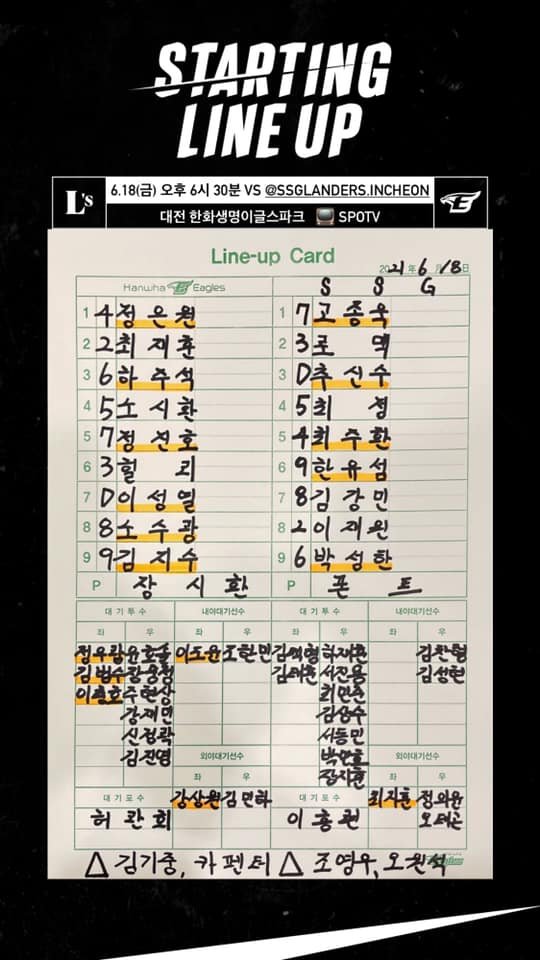 STARTING
LINE UP
L's
6.18(금) 오후 6시 30분 VS @SSGLANDERS.INCHEON
대전 한화생명이글스파크 SPOTV
Line-up Card
2021년 6월 18일
Hanwha Eagles S S G
1 4 정은원 1 7 고종욱
2 2 최재훈 2 3 로맥
3 6 하주석 3 D 추신수
4 5 노시환 4 5 최정
5 7 정진호 5 4 최주환
6 3 힐리 6 9 한유섬
7 D 이성열 7 8 김강민
8 8 노수광 8 2 이재원
9 9 김지수 9 6 박성한
P 장시환 P 폰트
대기투수 내야대기선수 대기투수 내야대기선수
좌 우 좌 우 좌 우 좌 우
정우람 윤호솔 이도윤 조한민 김택형 하재훈 김찬형
김범수 김태훈 서진용 김성현
이충호 주현상 최민준
강재민 김상수
신정락 서동민
김진영 외야대기선수 박민호 외야대기선수
좌 우 장지훈 좌 우
대기포수 강상원 김민하 대기포수 최지훈 정의윤
허관회 이흥련 오태곤
△ 김기중, 카펜터 △ 조영우, 오원석